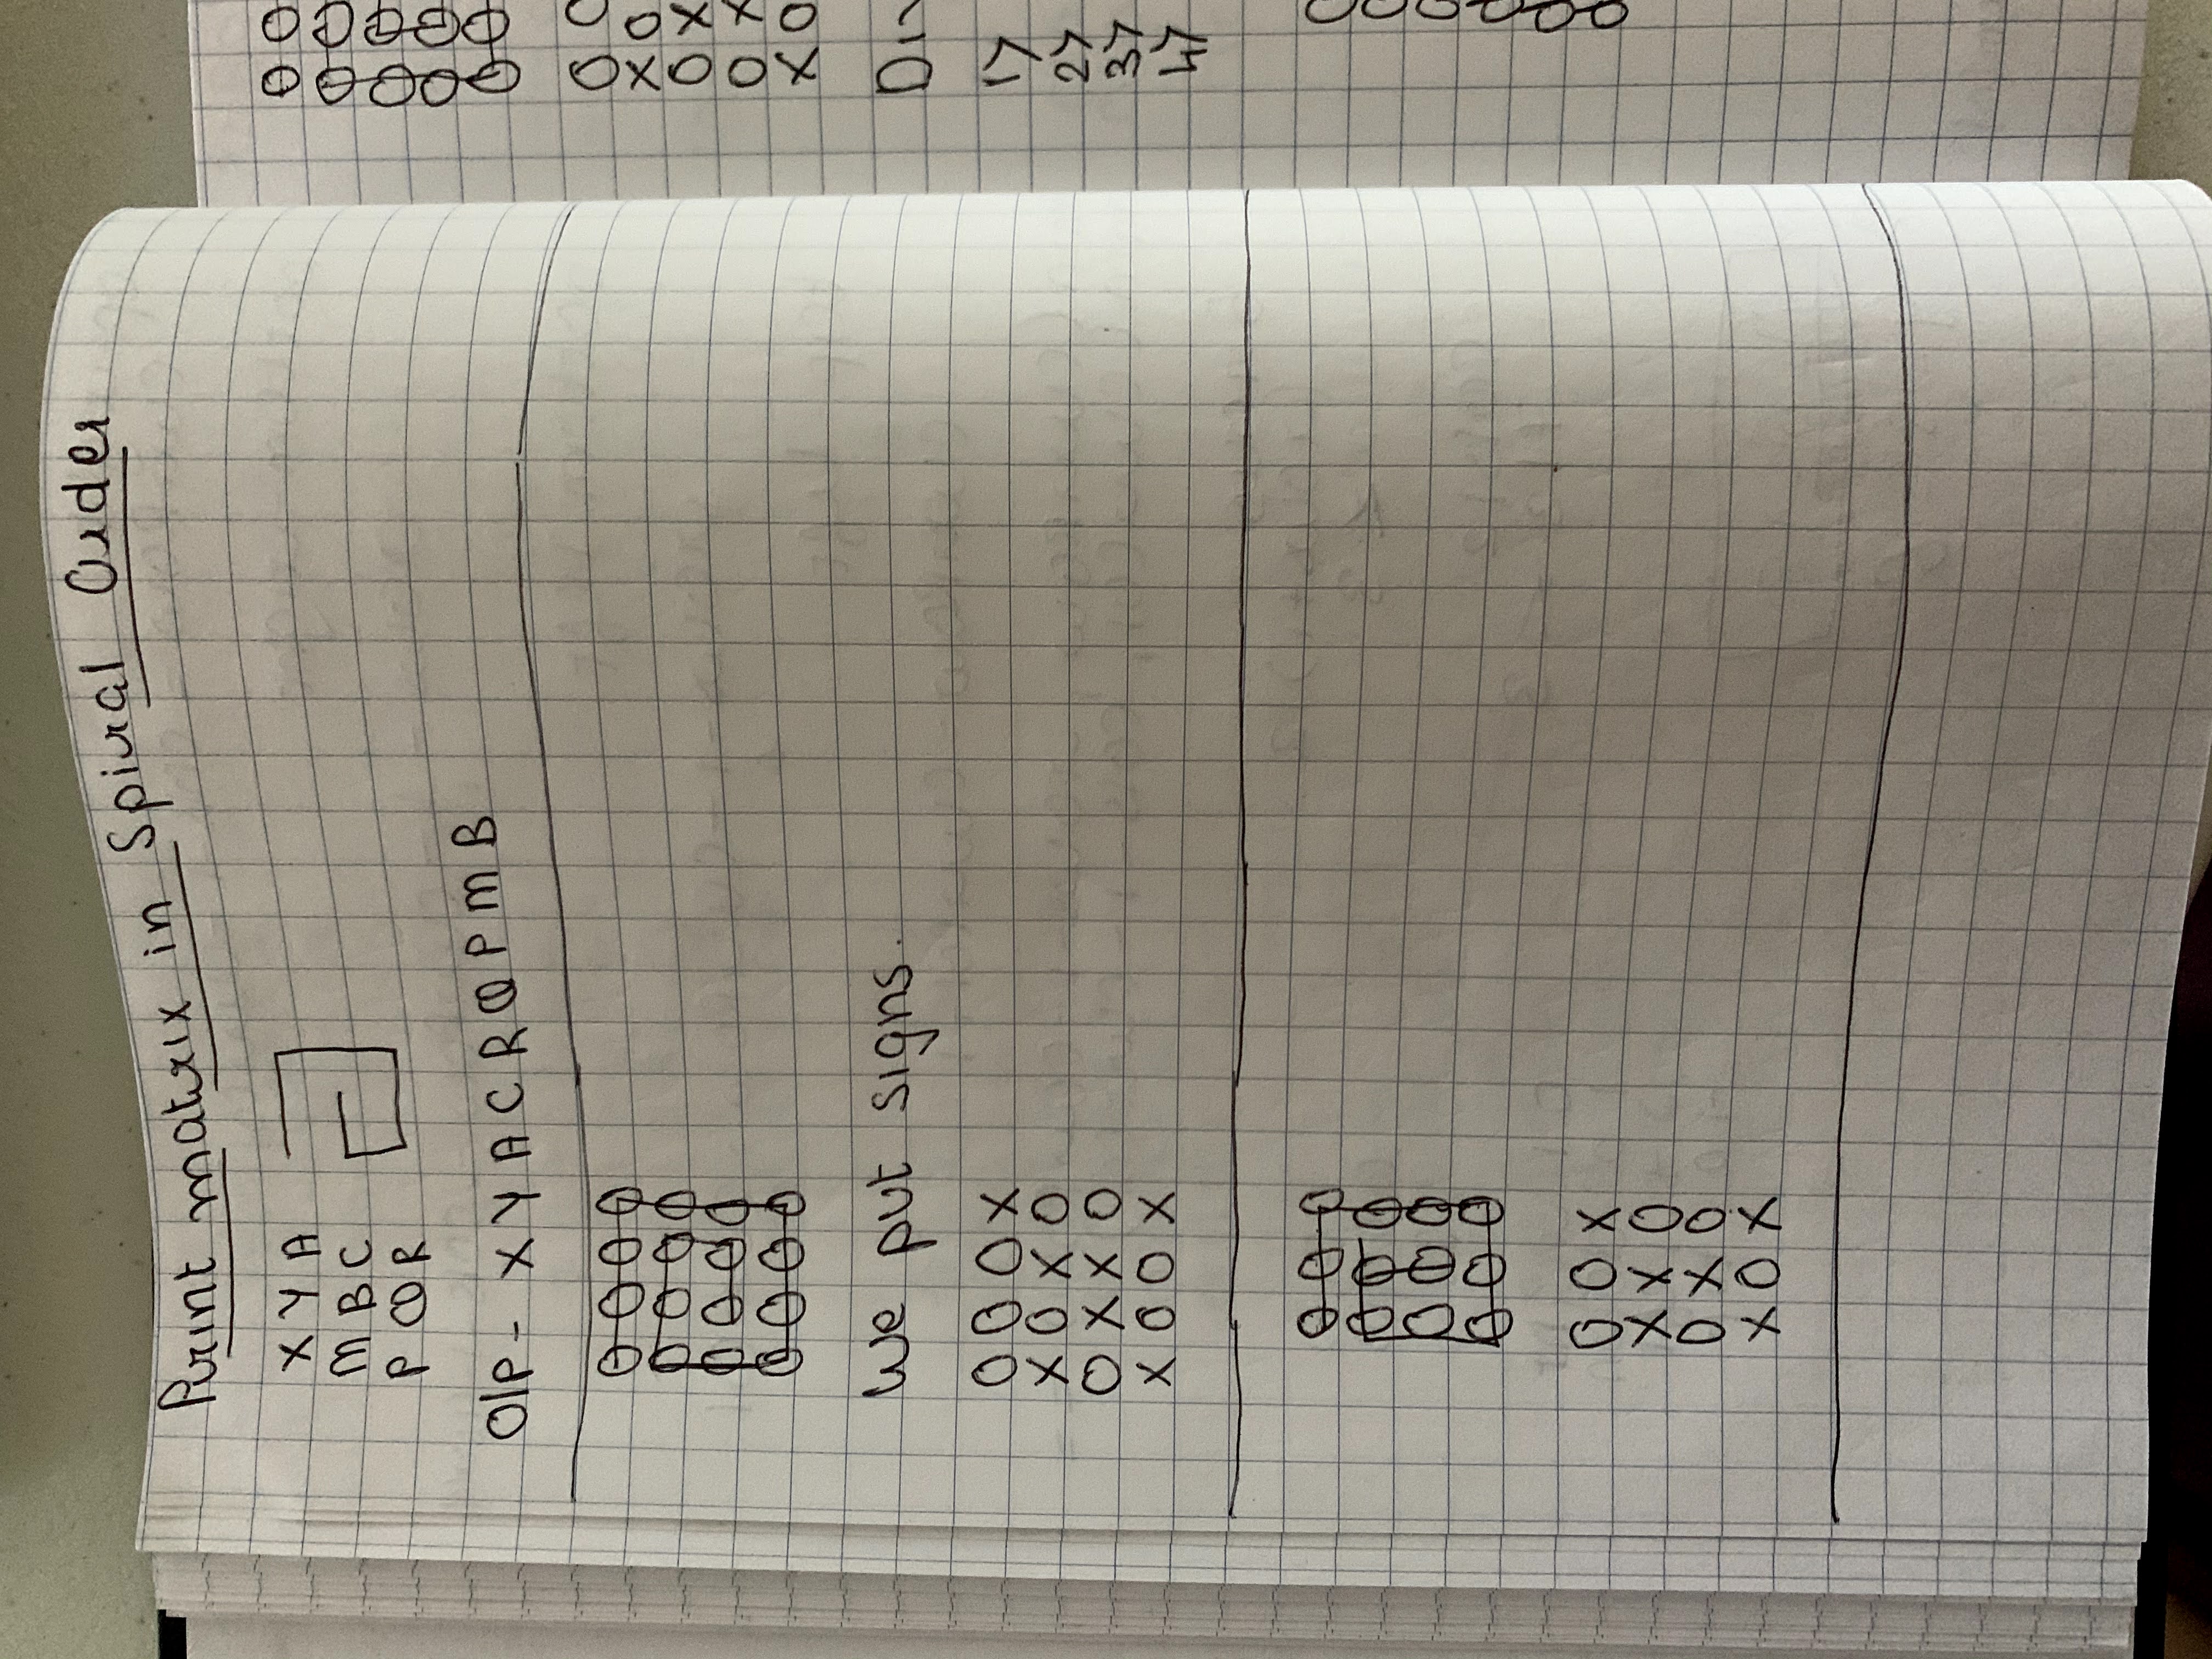 Print matrix in Spiral Order
X Y A
M B C
P Q R
O/P - X Y A C R Q P M B
O O O O
O O O O
O O O O
O O O O
We put signs.
O O O X
X O X O
O X X O
X O O X
O O O
O O O
O O O
O O O
O O X
X X O
O X O
X O X
O O
O O
O O
O O
O O
O O
X O
O X
O X
X O
1>
2>
3>
4>
O
O
O
O
O
O